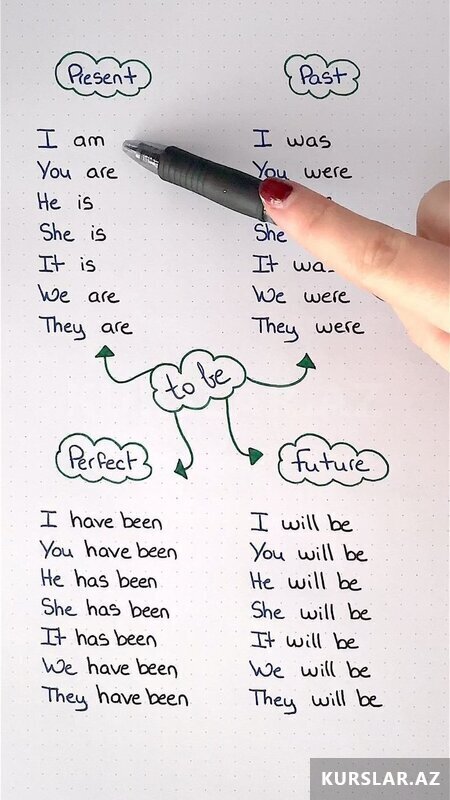 Present
I am
You are
He is
She is
It is
We are
They are
Past
I was
You were
She
It was
We were
They were
to be
Perfect
I have been
You have been
He has been
She has been
It has been
We have been
They have been
Future
I will be
You will be
He will be
She will be
It will be
We will be
They will be
KURSLAR.AZ